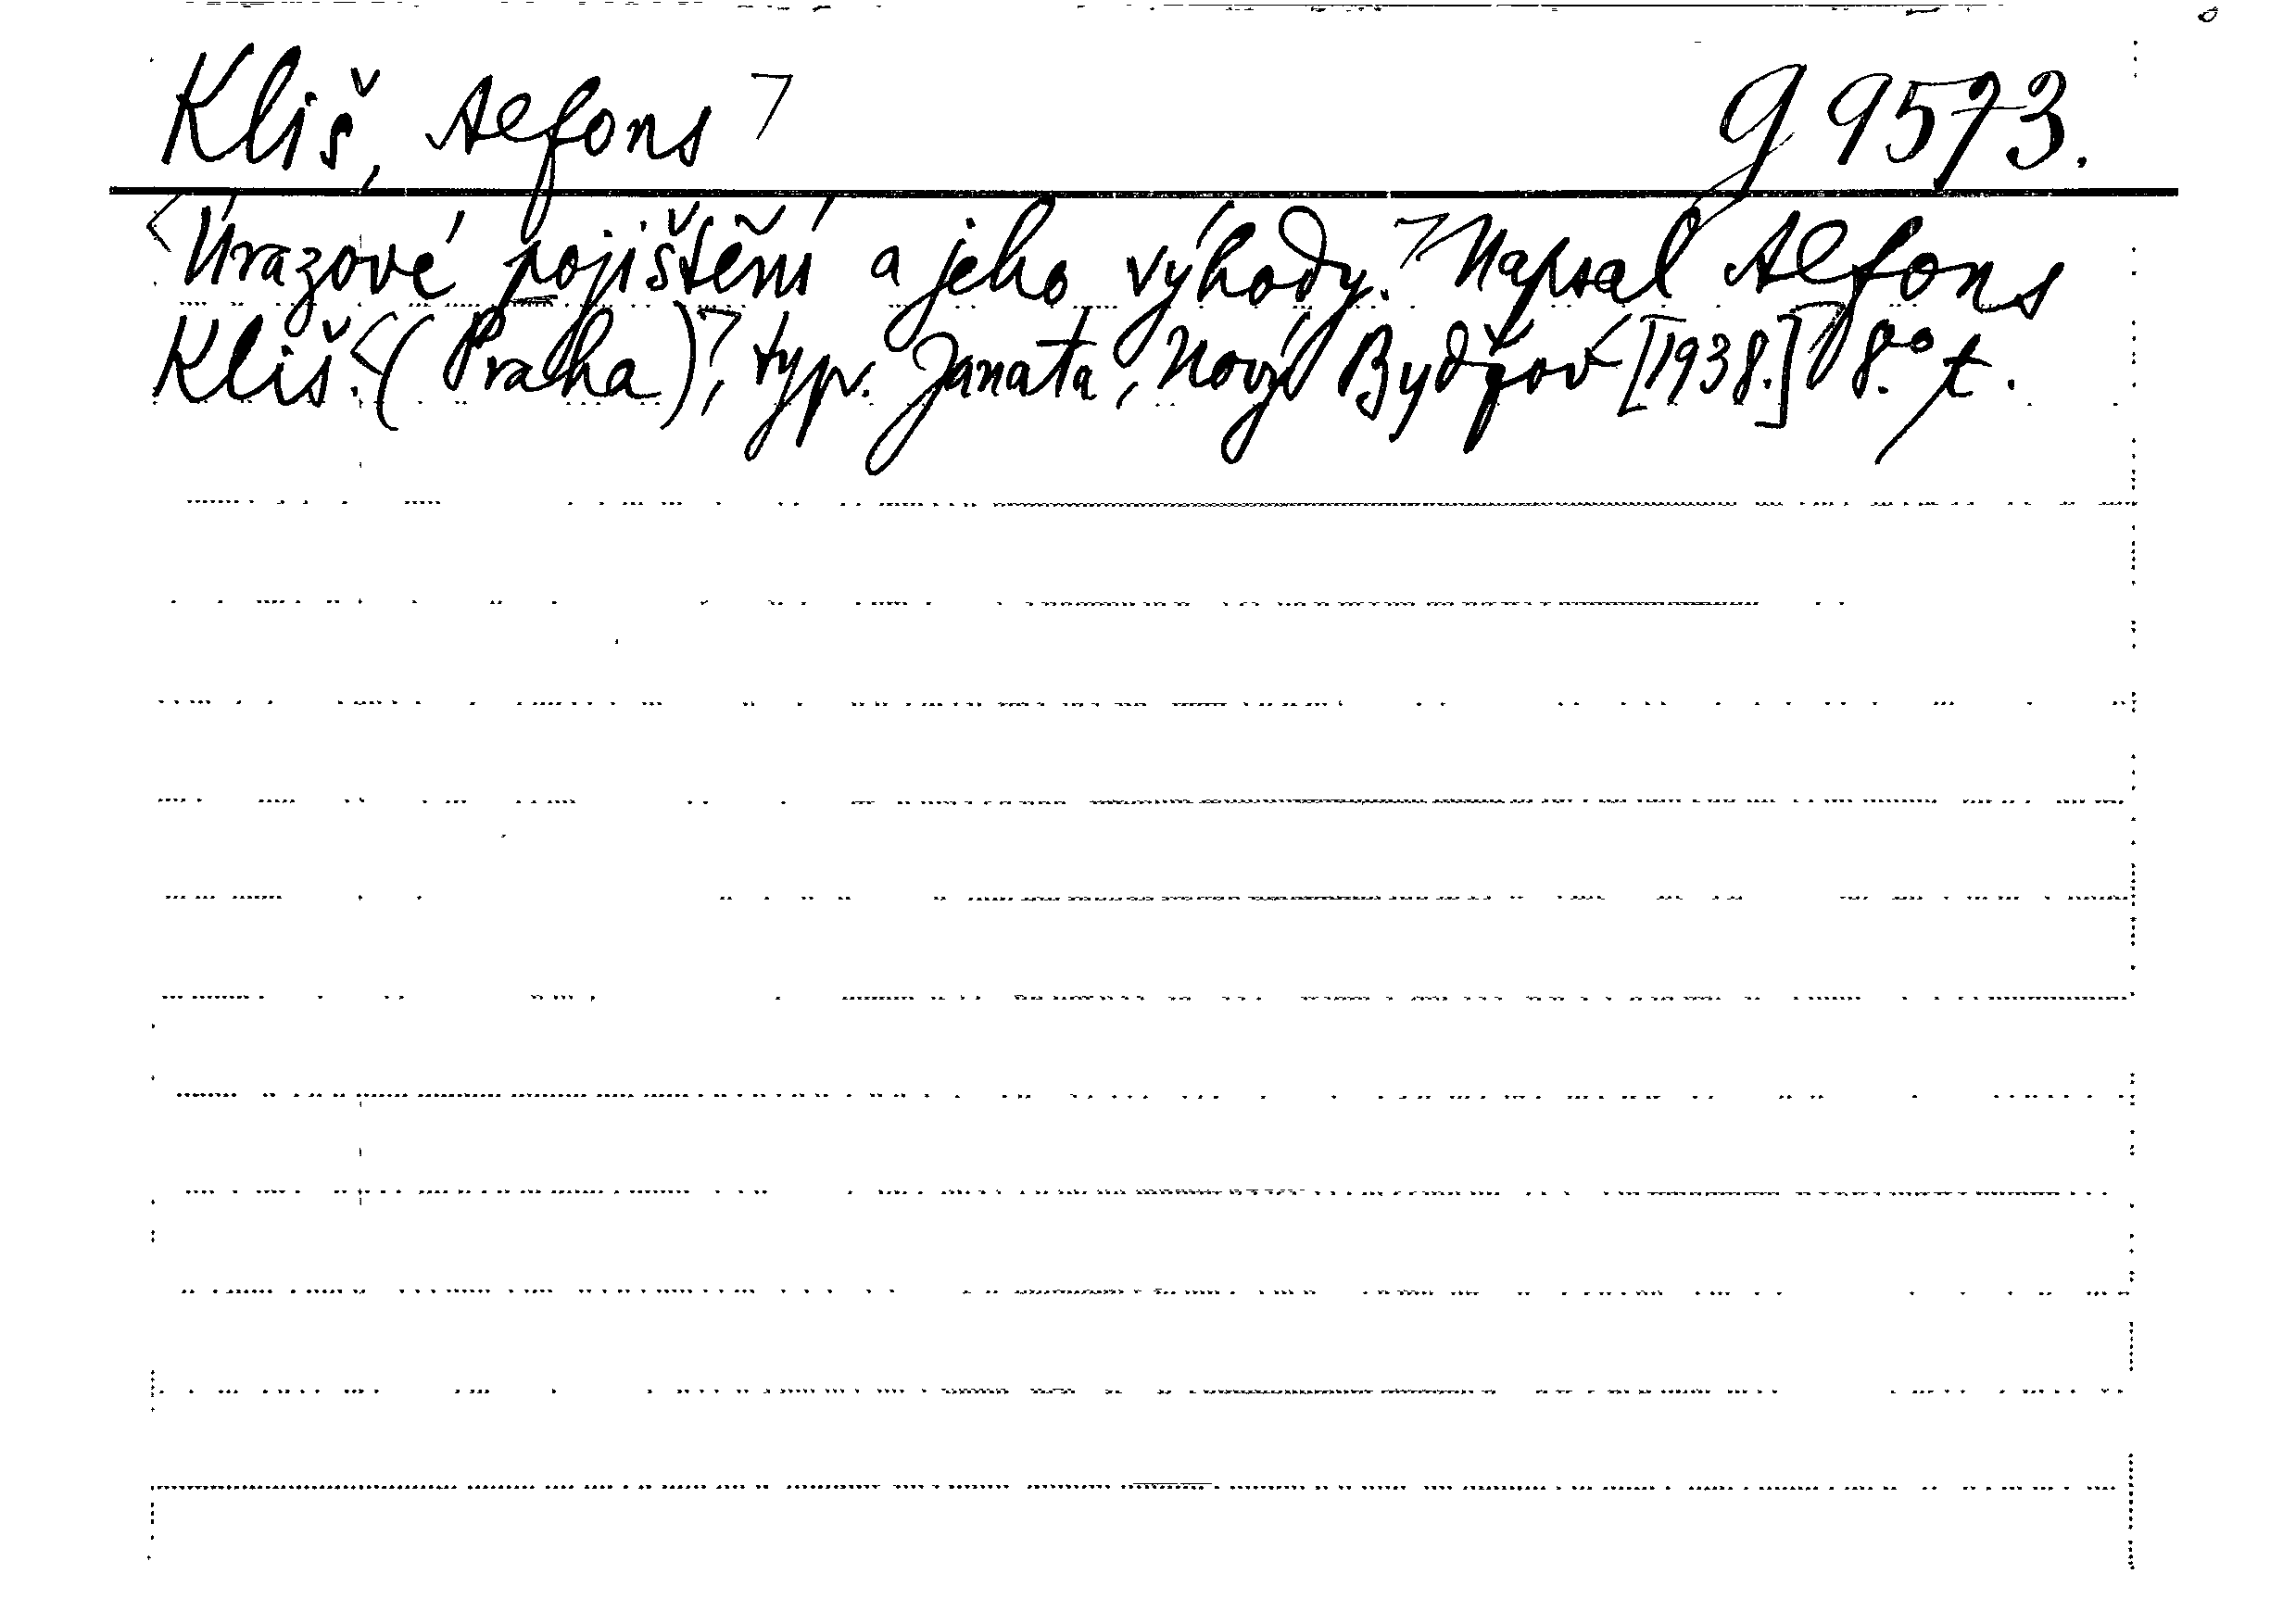 Kliš, Alfons ⌝ g 9573.
<Úrazové pojištění a jeho výhody.⌝ Napsal Alfons
Kliš.<(Praha)⌝, typ. Janata, Nový Bydžov <[1938.]⌝ 8.° t.